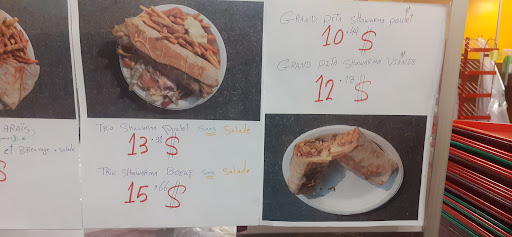 ARAIS
et Breuvage + salade
$
Trio Shawarma Poulet Sans Salade
13.
$
Trio Shawarma Boeuf Sans Salade
15.66 $
Grand Pita Shawarma poulet
10.44 $
Grand Pita Shawarma Viande
12.
$